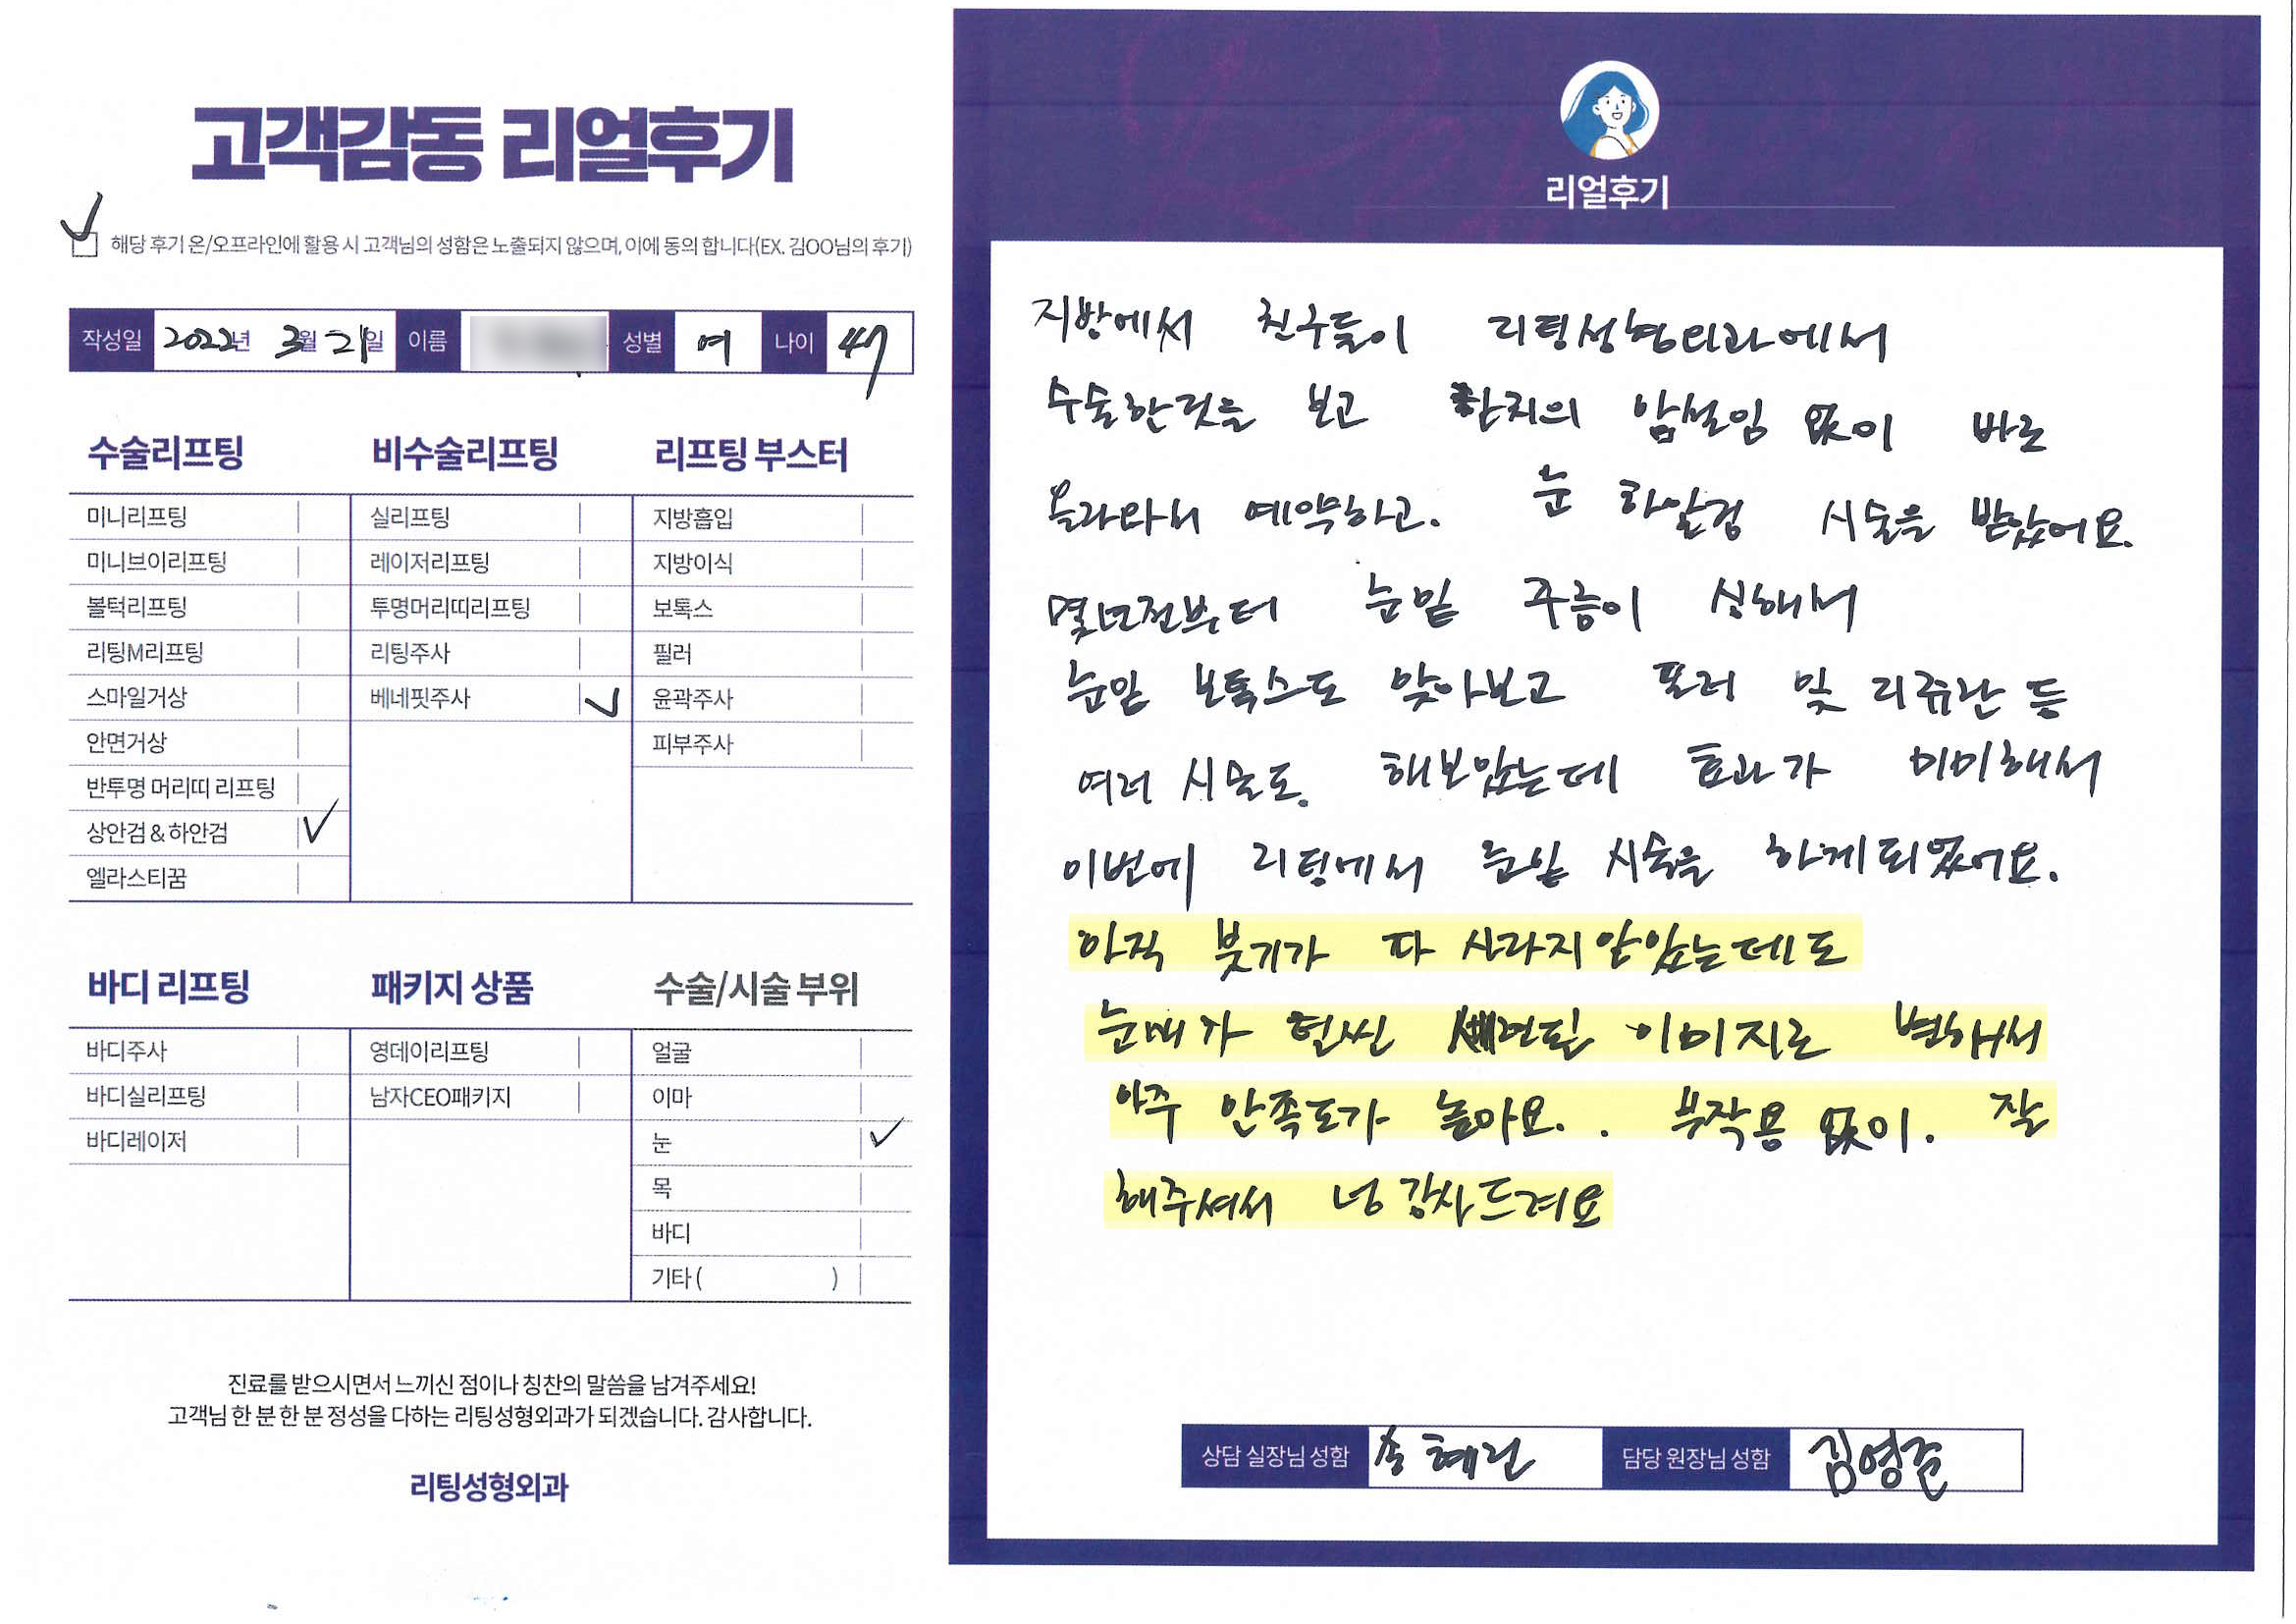 고객감동 리얼후기
해당 후기 온/오프라인에 활용 시 고객님의 성함은 노출되지 않으며, 이에 동의 합니다(EX. 김OO님의 후기)
작성일 2022년 3월 21일 이름 성별 여 나이 47
수술리프팅
미니리프팅
미니브이리프팅
볼턱리프팅
리팅M리프팅
스마일거상
안면거상
반투명 머리띠 리프팅
상안검 & 하안검
엘라스티꿈
비수술리프팅
실리프팅
레이저리프팅
투명머리띠리프팅
리팅주사
베네핏주사
리프팅 부스터
지방흡입
지방이식
보톡스
필러
윤곽주사
피부주사
바디 리프팅
바디주사
바디실리프팅
바디레이저
패키지 상품
영데이리프팅
남자CEO패키지
수술/시술 부위
얼굴
이마
눈
목
바디
기타 ( )
진료를 받으시면서 느끼신 점이나 칭찬의 말씀을 남겨주세요!
고객님 한 분 한 분 정성을 다하는 리팅성형외과가 되겠습니다. 감사합니다.
리팅성형외과
리얼후기
지방에서 친구들이 리팅성형외과에서
수술한것을 보고 한치의 암설임 없이 바로
올라와서 예약하고. 눈 하안검 시술을 받았어요.
몇년전부터 눈밑 주름이 심해서
눈밑 보톡스도 맞아보고 필러 및 리쥬란 등
여러 시술도 해보았는데 효과가 미미해서
이번에 리팅에서 눈밑 시술을 하게되었어요.
아직 붓기가 다 사라지않았는데도
눈매가 훨씬 세련된 이미지로 변해서
아주 만족도가 높아요.. 부작용 없이. 잘
해주셔서 넘 감사드려요
상담 실장님 성함 송혜린 담당 원장님 성함 김영준